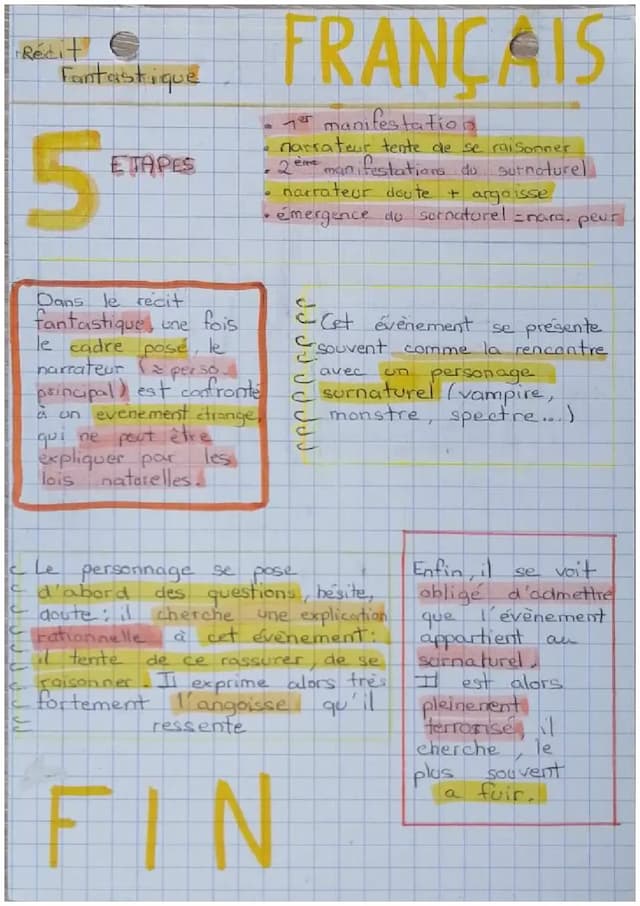 Récit
Fantastique
FRANÇAIS
5 ETAPES
• 1er manifestation
• narrateur tente de se raisonner
• 2ème manifestations du surnaturel
• narrateur doute + argoisse
• émergence du sornaturel = nara. peur
Dans le récit
fantastique, une fois
le cadre posé, le
narrateur (≈ perso.
principal) est confronté
à un evenement étrange,
qui ne peut être
expliquer par les
lois naturelles.
Cet évènement se présente
souvent comme la rencontre
avec un personage
surnaturel (vampire,
monstre, spectre...)
Le personnage se pose
d'abord des questions, hésite,
doute : il cherche une explication
rationnelle à cet évènement :
il tente de ce rassurer, de se
raisonner. Il exprime alors très
fortement l'angoisse qu'il
ressente
Enfin, il se voit
obligé d'admettre
que l'évènement
appartient au
surnaturel.
Il est alors
pleinement
terrorisé, il
cherche, le
plus souvent
a fuir.
FIN